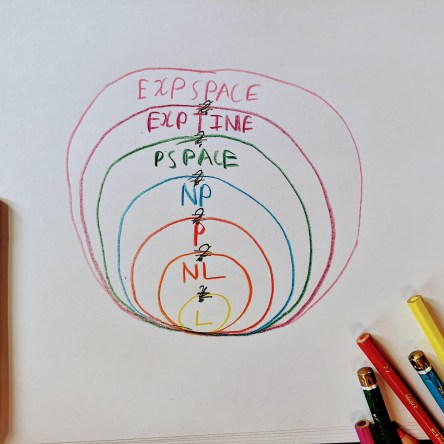 EXPSPACE
EXPTIME
PSPACE
NP
P
NL
L